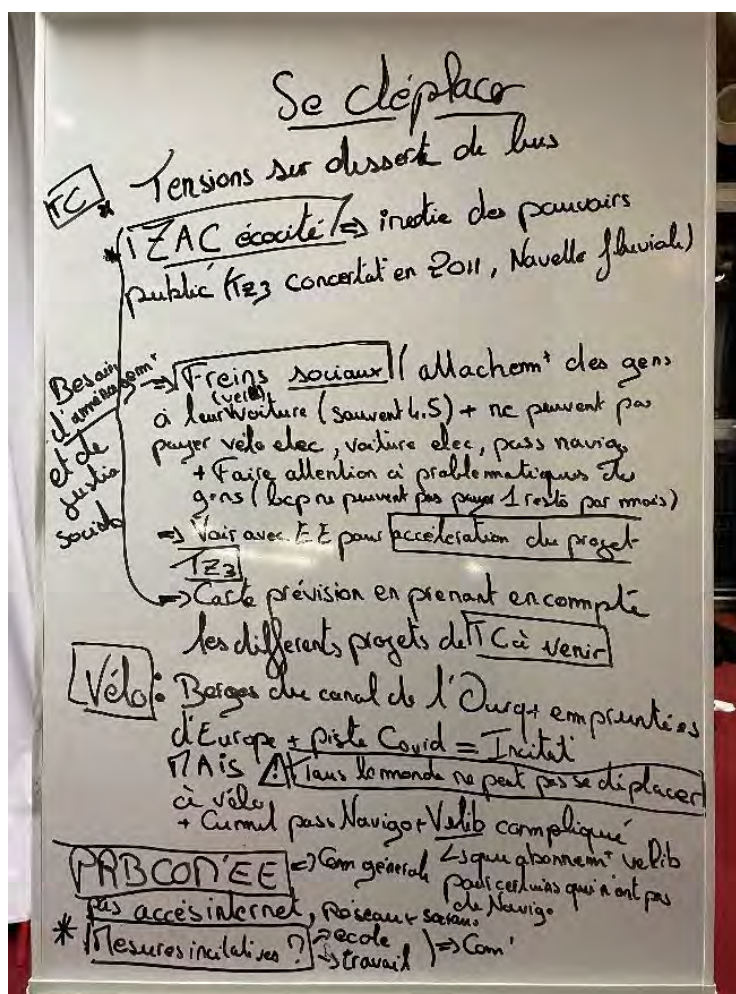 Se déplacer
TC * Tensions sur desserte de bus
* ZAC écocité => inertie des pouvoirs
public (TZ3 concertat° en 2011, Navette fluviale)
Besoin
d'aménagem^t
et de
justice
sociale
=> Freins sociaux // attachem^t des gens
(vélo)
à leur voiture (souvent 4.5) + ne peuvent pas
payer vélo elec, voiture elec, pass navigo
+ Faire attention à problématiques des
gens (bcp ne peuvent pas payer 1 resto par mois)
=> Voir avec EE pour accélération du projet
TZ3
=> Carte prévision en prenant en compte
les différents projets de TC à venir
Vélo : Berges du canal de l'Ourcq + empruntées
d'Europe + piste Covid = Incitat°
MAIS ⚠ Tous le monde ne peut pas se déplacer
à vélo
+ Cumul pass Navigo + Velib compliqué
↳ que abonnem^t velib
pour certains qui n'ont pas
de Navigo
PRB COM' EE => Com générale
pas accès internet, réseaux sociaux
* Mesures incitatives ? → école
↳ travail
) => Com'